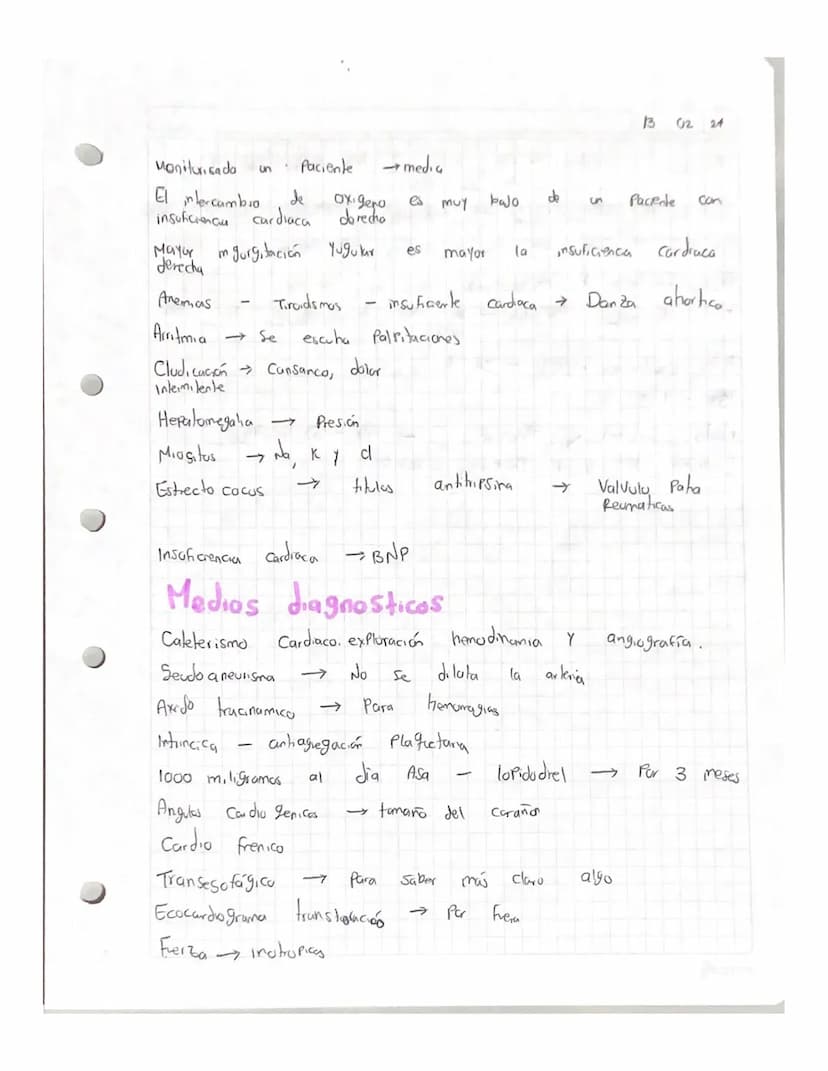 13 02 24
Moniturisado un Paciente → media
El intercambio de oxigeno es muy bajo de un Paciente con
insuficiencia cardiaca derecha
Mayor ingurgitación Yugular es mayor la insuficiencia cardiaca
derecha
Anemias - Tiroidismos - insuficiente cardiaca → Danza ahortica
Arritmia → Se escucha Palpitaciones
Cludicación → Cansanco, dolor
intermitente
Hepatomegalia → Presión
Miositos → Na, K y cl
Estrecto cocus → titulos antihipsina → Valvulo Patia
Reumaticas
Insuficiencia cardiaca → BNP
Medios diagnosticos
Cateterismo Cardiaco. exploración hemodinamia Y angiografía.
Seudo aneurisma → No se dilata la arteria
Axedo trucinamico → Para hemorragias
Intrincica - antiagregación Plaquetaria
1000 miligramos al dia ASA - lopidodrel → Por 3 meses
Angulos Cardio genicos → tamaño del corañon
Cardio frenico
Transesofágico → Para saber más claro algo
Ecocardograma transtoracicó → Por fuera
Fuerza → inotropicos